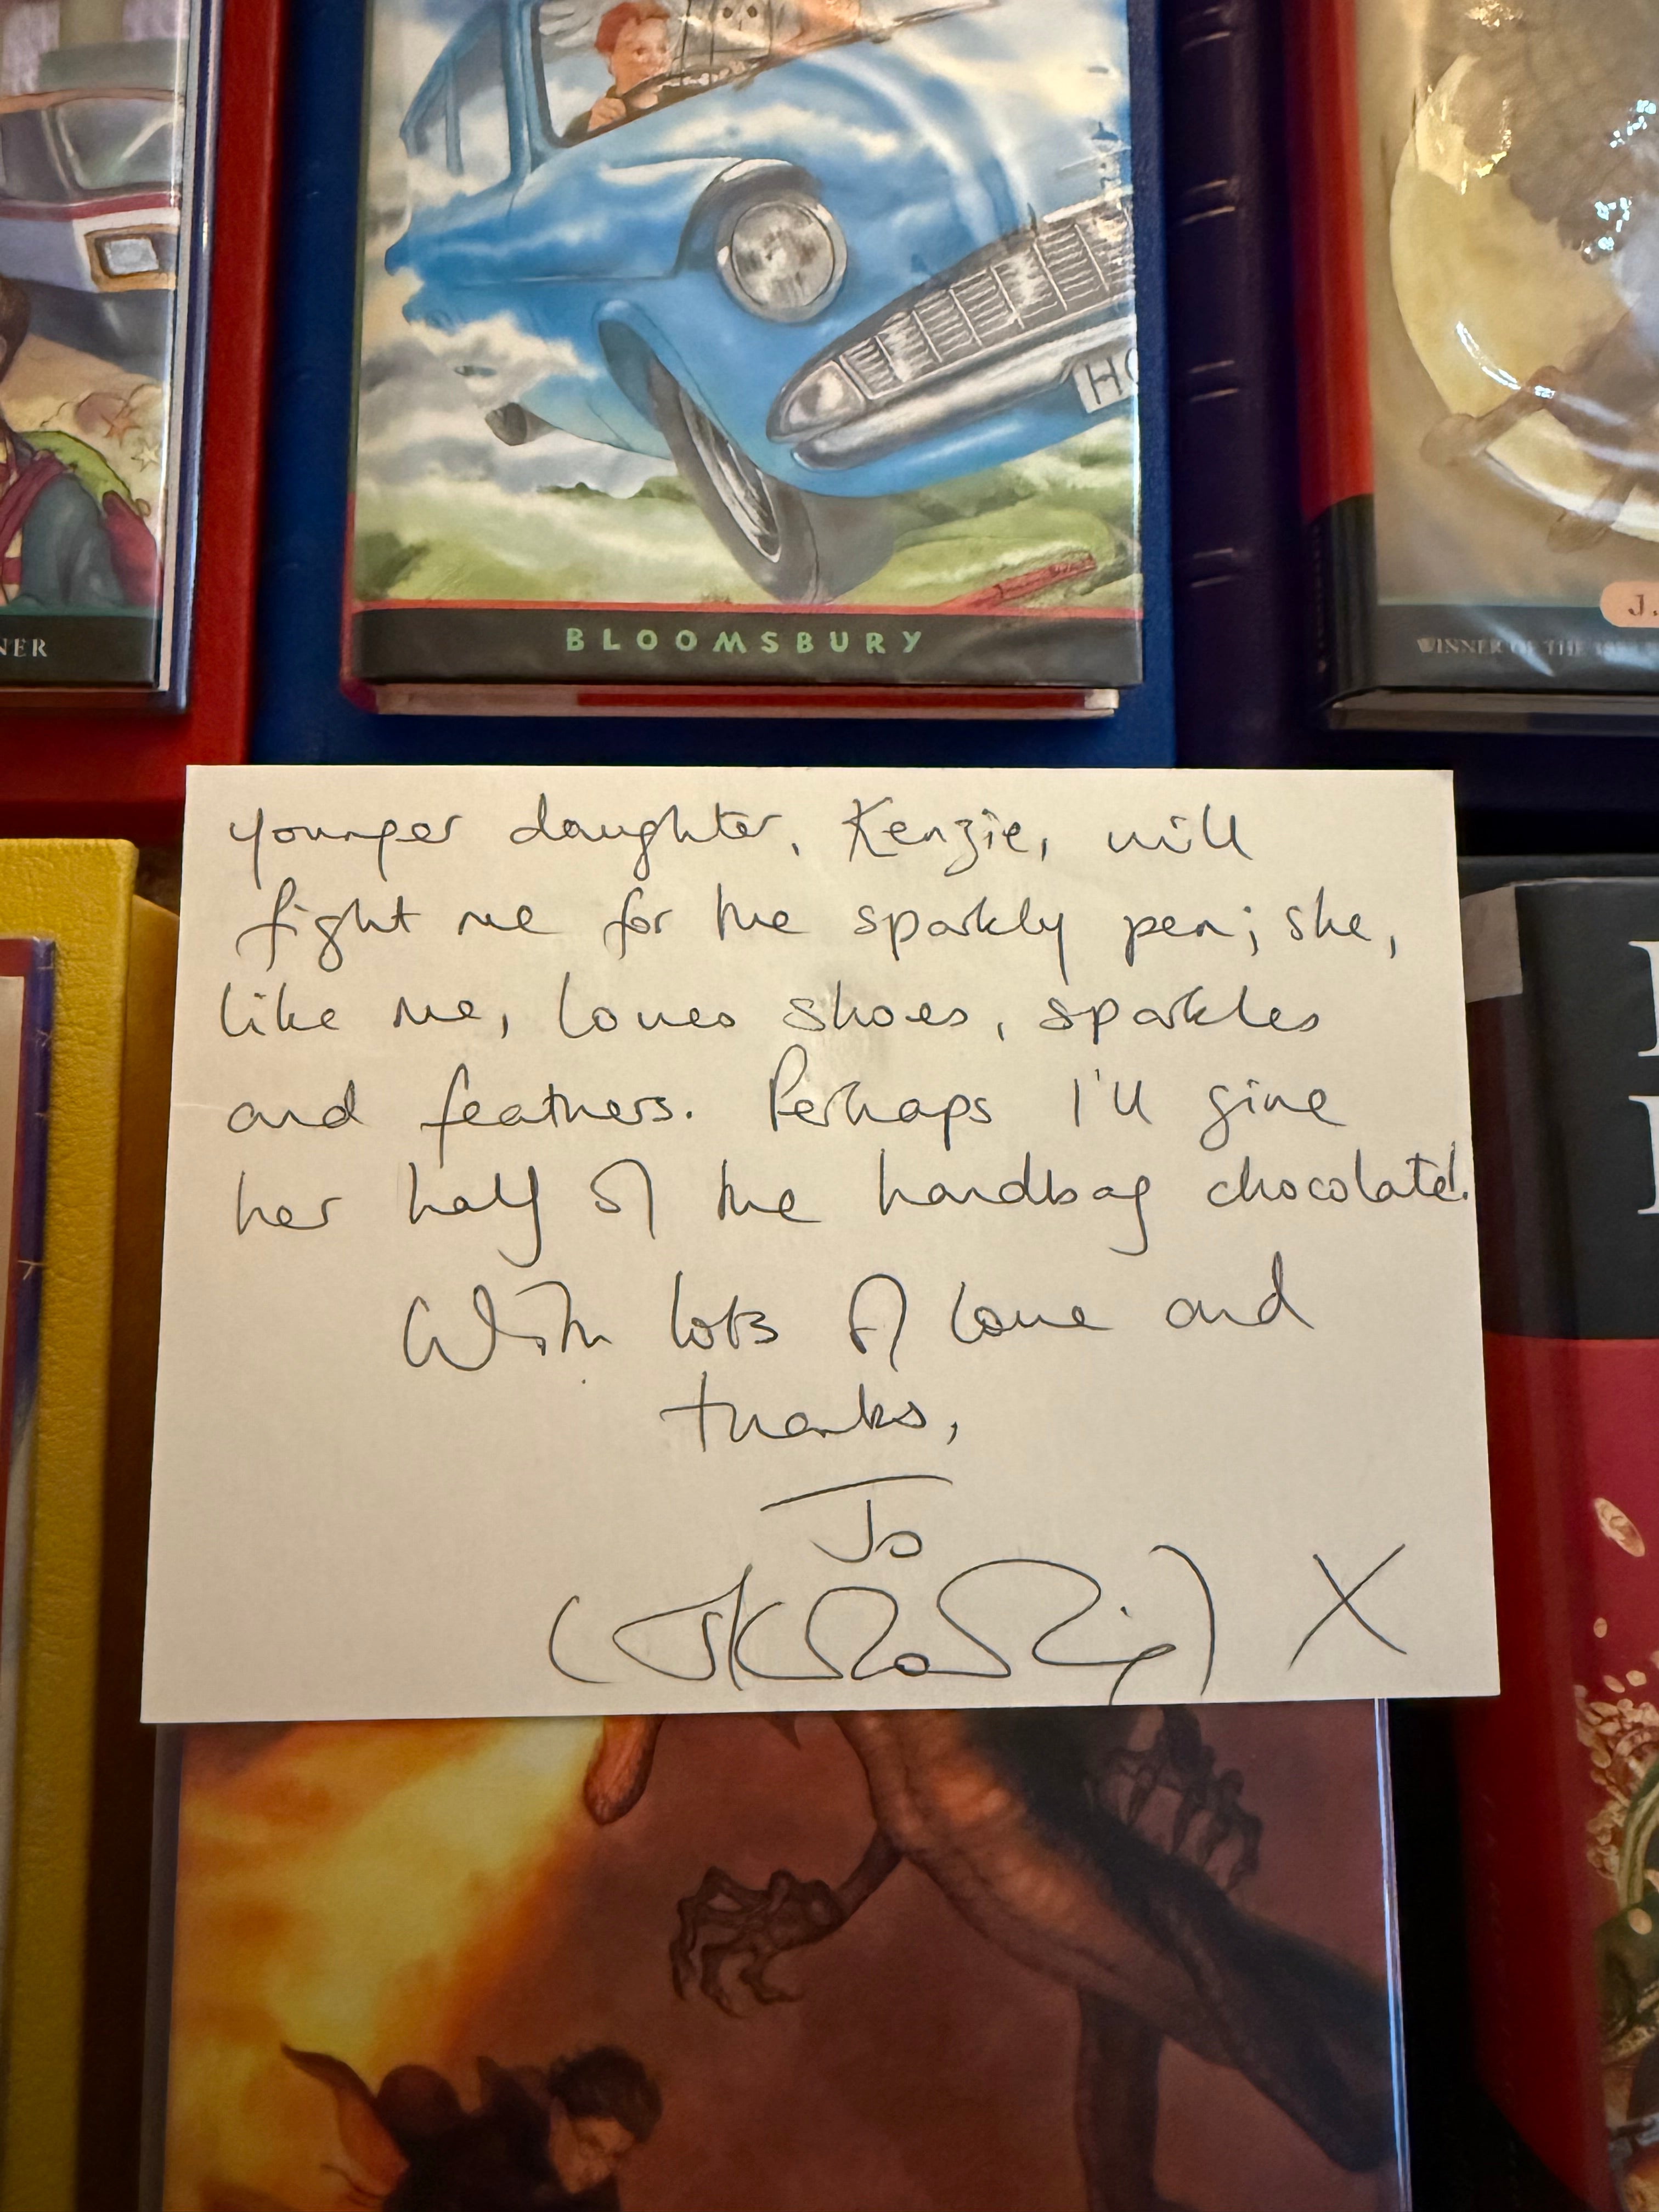 HO
BLOOMSBURY
NER
J.
WINNER OF THE
younger daughter, Kenzie, will
fight me for the sparkly pen; she,
like me, loves shoes, sparkles
and feathers. Perhaps I'll give
her half of the handbag chocolate!
With lots of love and
thanks,
Jo
(JKRowling) X